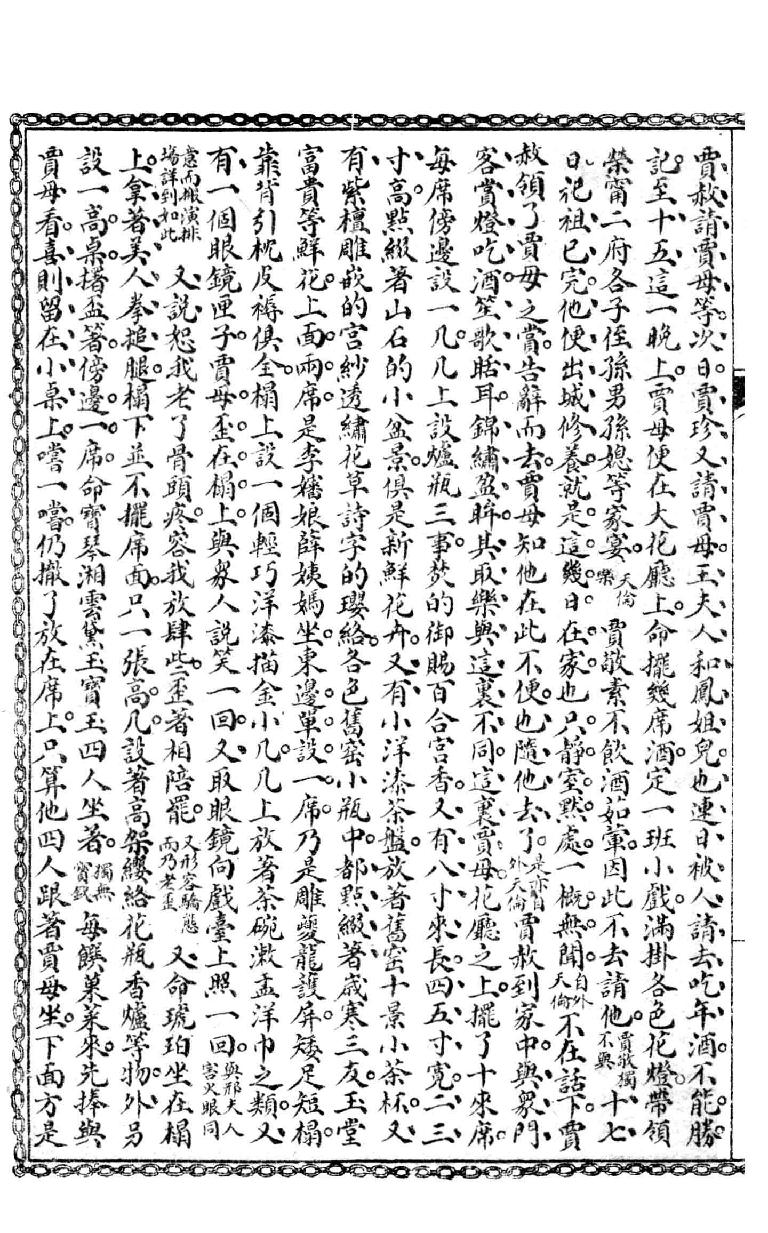 賈赦請賈母等次日賈珍又請賈母王夫人和鳳姐兒也連日被人請去吃年酒不能勝
記至十五這一晚上賈母便在大花廳上命擺幾席酒定一班小戲滿掛各色花燈帶領
榮甯二府各子侄孫男孫媳等家宴天倫樂賈敬素不飲酒茹葷因此不去請他賈敬獨不與十七
日祀祖已完他便出城修養就是這幾日在家也只靜室默處一概無聞自外天倫不在話下賈
赦領了賈母之賞告辭而去賈母知他在此不便也隨他去了是亦自外天倫賈赦到家中與眾門
客賞燈吃酒笙歌聒耳錦繡盈眸其取樂與這裏不同這裏賈母花廳之上擺了十來席
每席傍邊設一几几上設爐瓶三事焚的御賜百合宮香又有八寸來長四五寸寬二三
寸高點綴著山石的小盆景俱是新鮮花卉又有小洋漆茶盤放著舊窑十景小茶杯又
有紫檀雕嵌的宮紗透繡花草詩字的瓔絡各色舊窑小瓶中都點綴著歲寒三友玉堂
富貴等鮮花上面兩席是李嬸娘薛姨媽坐東邊單設一席乃是雕夔龍護屏矮足短榻
靠背引枕皮褥俱全榻上設一個輕巧洋漆描金小几几上放著茶碗漱盂洋巾之類又
有一個眼鏡匣子賈母歪在榻上與眾人說笑一回又取眼鏡向戲臺上照一回與邢夫人害火眼同
意而搬演排場詳到如此又說恕我老了骨頭疼容我放肆些歪著相陪罷又形容驕態而乃老歪又命琥珀坐在榻
上拿著美人拳搥腿榻下並不擺席面只一張高几設著高架纓絡花瓶香爐等物外另
設一高桌擺盃箸傍邊一席命寶琴湘雲黛玉寶玉四人坐著獨無寶釵每饌菓菜來先捧與
賈母看喜則留在小桌上嚐一嚐仍撤了放在席上只算他四人跟著賈母坐下面方是